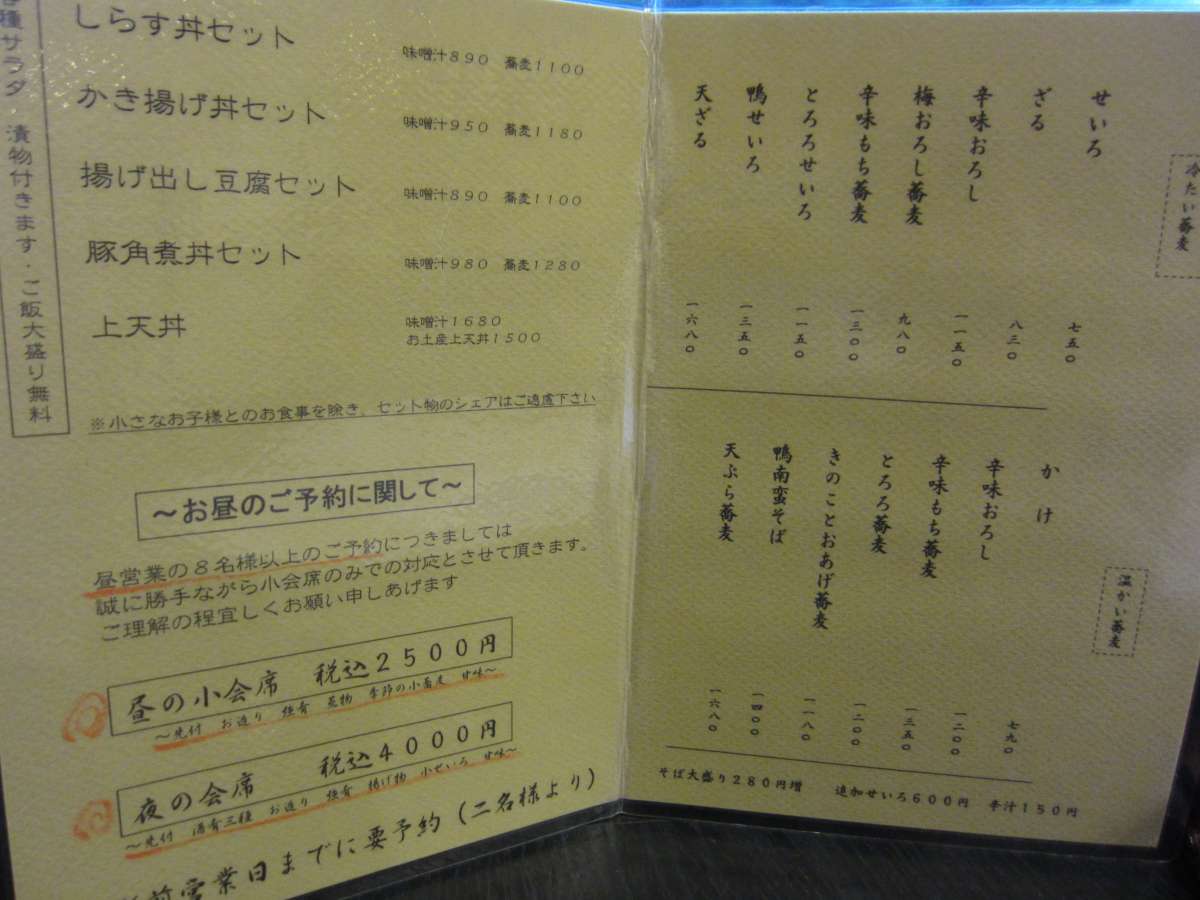 各種サラダ 漬物付きます・ご飯大盛り無料
しらす丼セット 味噌汁890 蕎麦1100
かき揚げ丼セット 味噌汁950 蕎麦1180
揚げ出し豆腐セット 味噌汁890 蕎麦1100
豚角煮丼セット 味噌汁980 蕎麦1280
上天丼 味噌汁1680
お土産上天丼1500
※小さなお子様とのお食事を除き、セット物のシェアはご遠慮下さい
～お昼のご予約に関して～
昼営業の8名様以上のご予約につきましては
誠に勝手ながら小会席のみでの対応とさせて頂きます。
ご理解の程宜しくお願い申しあげます
昼の小会席 税込2500円
～先付 お造り 強肴 蒸物 季節の小蕎麦 甘味～
夜の会席 税込4000円
～先付 酒肴三種 お造り 強肴 揚げ物 小せいろ 甘味～
前営業日までに要予約(二名様より)
冷たい蕎麦
せいろ 七五〇
ざる 八三〇
辛味おろし 一一五〇
梅おろし蕎麦 九八〇
辛味もち蕎麦 一三〇〇
とろろせいろ 一一五〇
鴨せいろ 一三五〇
天ざる 一六八〇
温かい蕎麦
かけ 七九〇
辛味おろし 一二〇〇
辛味もち蕎麦 一三五〇
とろろ蕎麦 一二〇〇
きのことおあげ蕎麦 一一八〇
鴨南蛮そば 一四〇〇
天ぷら蕎麦 一六八〇
そば大盛り280円増 追加せいろ600円 辛汁150円